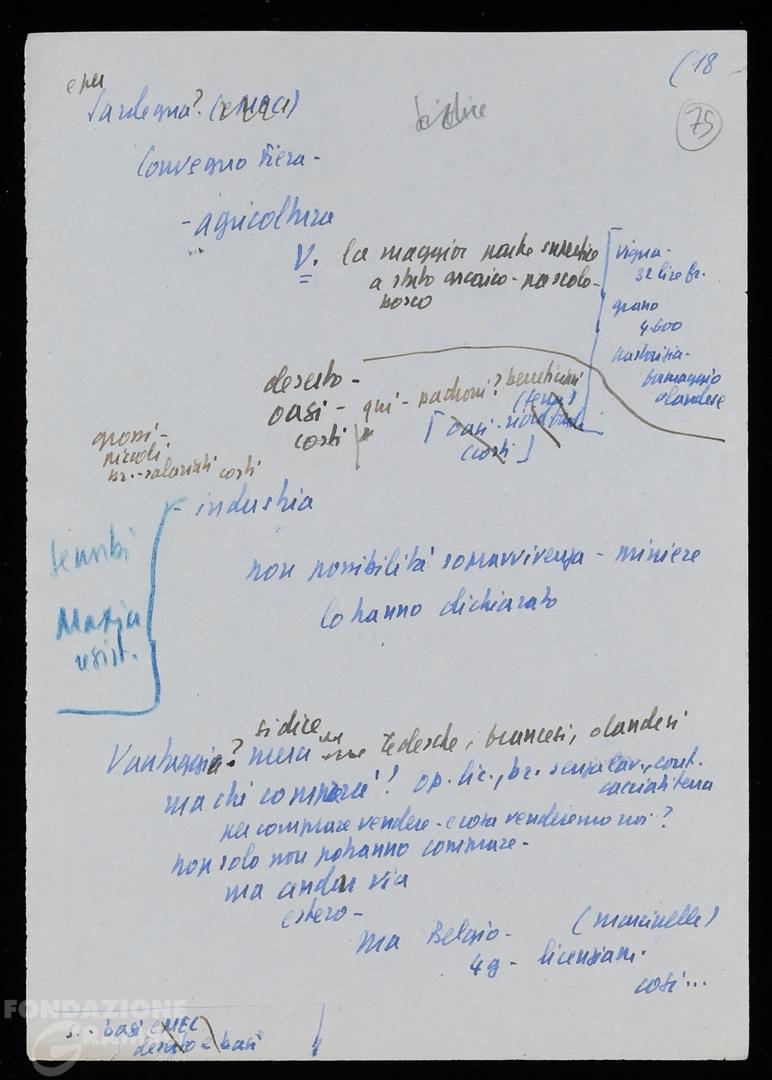 (18
75
e per
Sardegna? (e MEC)
Convegno Fiera -
- agricoltura
V. la maggior parte
a stato arcaico - pascolo -
bosco
vigna -
32 lire
grano
4.600
formaggio
olandese
deserto -
oasi - qui - padroni? beneficiari
costi
(terre)
[oasi
costi]
grossi -
piccoli
br. - salariati costi
- industria
non possibilità sopravvivenza - miniere
lo hanno dichiarato
Vantaggi? si dice
merci tedesche, francesi, olandesi
ma chi comprerà! op. lic., br. senza lav., cont.
cacciati terra
per comprare vendere - e cosa venderemo noi?
non solo non potranno comprare -
ma andar via
estero -
ma Belgio - (Marcinelle)
4g - licenziam.
così...
S. - basi e MEC
deserto e basi
FONDAZIONE
GRAMSCI